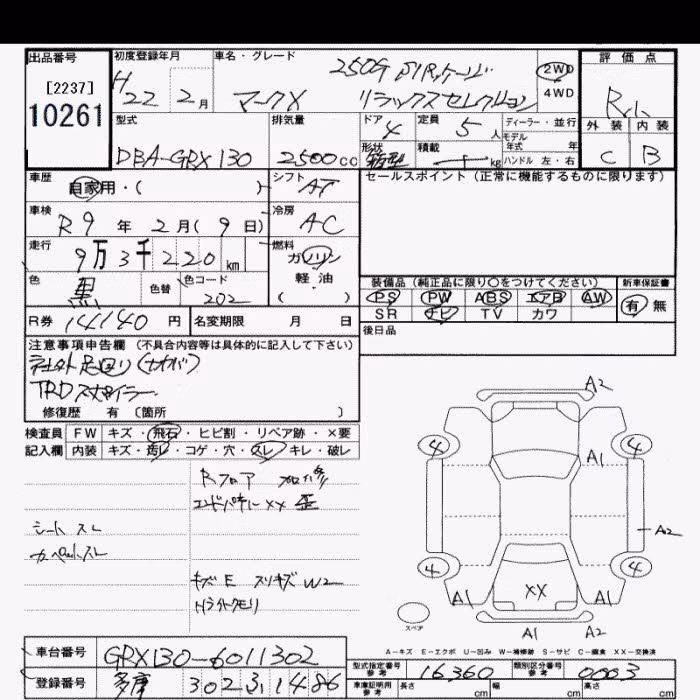 出品番号
[2237]
10261
初度登録年月
H22 2月
車名・グレード
マークX
250G
リラックスセレクション
2WD
4WD
評価点
外装 内装
C B
型式
DBA-GRX130
排気量
2500cc
ドア 4
形状 箱型
定員 5人
積載 kg
ディーラー・並行
モデル年式 年
ハンドル 左・右
車歴
自家用・( )
シフト AT
車検
R9年 2月(9日)
冷房 AC
走行
9万3千220km
燃料 ガソリン
軽・油
( )
色 黒
色替
色コード 202
R券 14140円
名変期限 月 日
セールスポイント(正常に機能するものに限ります)
装備品(純正品に限り○をつけてください)
PS PW ABS エアB AW
SR ナビ TV カワ
新車保証書
有 無
後日品
注意事項申告欄(不具合内容等は具体的に記入して下さい)
社外足回り
TRDスポイラー
修復歴 有 〔箇所 〕
検査員記入欄
FW キズ・飛石・ヒビ割・リペア跡・×要
内装 キズ・汚レ・コゲ・穴・スレ・キレ・破レ
Rフロア
エンドパネルXX 歪
シートスレ
カーペットスレ
キズE スリキズW2
Hライトクモリ
A2
4 4
A1
A2
4 4
A1 XX A1
スペア
A1 A2
A-キズ E-エクボ U-凹み W-補修跡 S-サビ C-腐食 XX-交換済
車台番号 GRX130-6011302
登録番号 多摩 302 ふ 1486
型式指定番号 参考 16360
類別区分番号 参考 0003
車庫証明用 参考 長さ cm 幅 cm 高さ cm